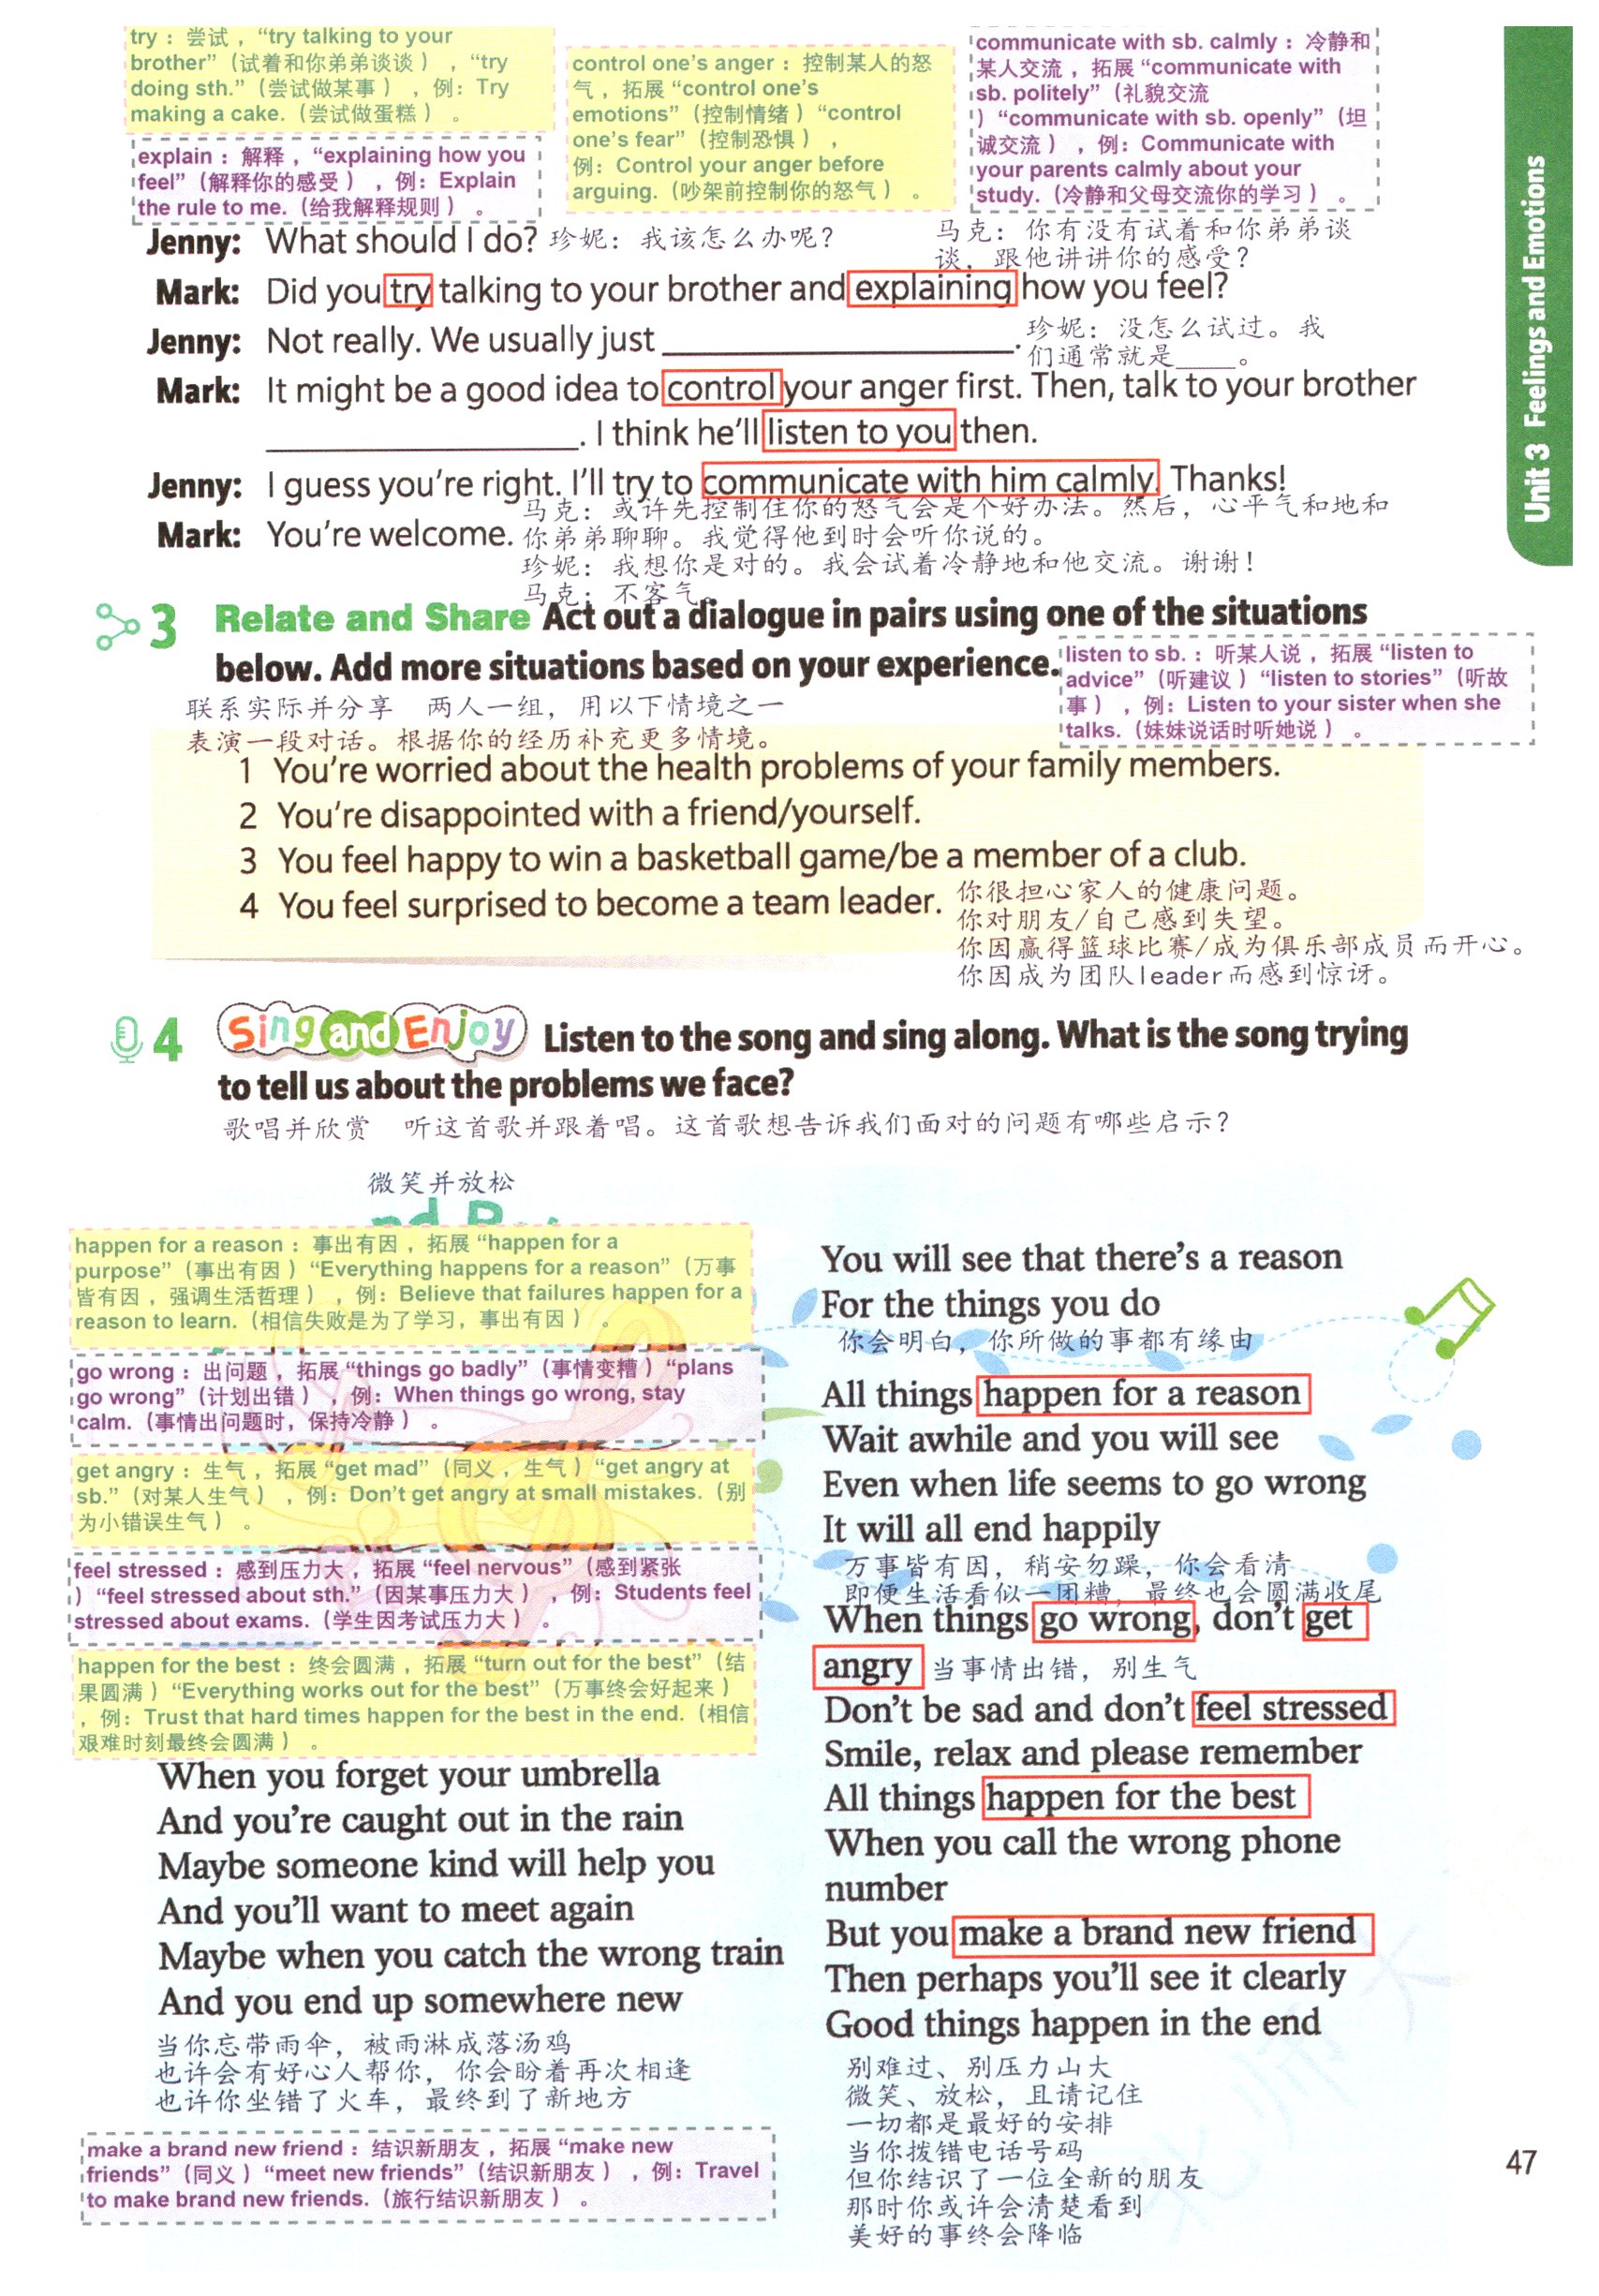 try：尝试，“try talking to your
brother”（试着和你弟弟谈谈），“try
doing sth.”（尝试做某事），例：Try
making a cake.（尝试做蛋糕）。
explain：解释，“explaining how you
feel”（解释你的感受），例：Explain
the rule to me.（给我解释规则）。
control one's anger：控制某人的怒
气，拓展“control one's
emotions”（控制情绪）“control
one's fear”（控制恐惧），
例：Control your anger before
arguing.（吵架前控制你的怒气）。
communicate with sb. calmly：冷静和
某人交流，拓展“communicate with
sb. politely”（礼貌交流
）“communicate with sb. openly”（坦
诚交流），例：Communicate with
your parents calmly about your
study.（冷静和父母交流你的学习）。
Unit 3 Feelings and Emotions
Jenny: What should I do? 珍妮：我该怎么办呢？
马克：你有没有试着和你弟弟谈
谈，跟他讲讲你的感受？
Mark: Did you try talking to your brother and explaining how you feel?
Jenny: Not really. We usually just ____________.
珍妮：没怎么试过。我
们通常就是____。
Mark: It might be a good idea to control your anger first. Then, talk to your brother
____________. I think he'll listen to you then.
Jenny: I guess you're right. I'll try to communicate with him calmly. Thanks!
Mark: You're welcome.
马克：或许先控制住你的怒气会是个好办法。然后，心平气和地和
你弟弟聊聊。我觉得他到时会听你说的。
珍妮：我想你是对的。我会试着冷静地和他交流。谢谢！
马克：不客气。
3 Relate and Share Act out a dialogue in pairs using one of the situations
below. Add more situations based on your experience.
listen to sb.：听某人说，拓展“listen to
advice”（听建议）“listen to stories”（听故
事），例：Listen to your sister when she
talks.（妹妹说话时听她说）。
联系实际并分享 两人一组，用以下情境之一
表演一段对话。根据你的经历补充更多情境。
1 You're worried about the health problems of your family members.
2 You're disappointed with a friend/yourself.
3 You feel happy to win a basketball game/be a member of a club.
4 You feel surprised to become a team leader.
你很担心家人的健康问题。
你对朋友/自己感到失望。
你因赢得篮球比赛/成为俱乐部成员而开心。
你因成为团队leader而感到惊讶。
4 Sing and Enjoy Listen to the song and sing along. What is the song trying
to tell us about the problems we face?
歌唱并欣赏 听这首歌并跟着唱。这首歌想告诉我们面对的问题有哪些启示？
微笑并放松
happen for a reason：事出有因，拓展“happen for a
purpose”（事出有因）“Everything happens for a reason”（万事
皆有因，强调生活哲理），例：Believe that failures happen for a
reason to learn.（相信失败是为了学习，事出有因）。
go wrong：出问题，拓展“things go badly”（事情变糟）“plans
go wrong”（计划出错），例：When things go wrong, stay
calm.（事情出问题时，保持冷静）。
get angry：生气，拓展“get mad”（同义，生气）“get angry at
sb.”（对某人生气），例：Don't get angry at small mistakes.（别
为小错误生气）。
feel stressed：感到压力大，拓展“feel nervous”（感到紧张
）“feel stressed about sth.”（因某事压力大），例：Students feel
stressed about exams.（学生因考试压力大）。
happen for the best：终会圆满，拓展“turn out for the best”（结
果圆满）“Everything works out for the best”（万事终会好起来）
，例：Trust that hard times happen for the best in the end.（相信
艰难时刻最终会圆满）。
When you forget your umbrella
And you're caught out in the rain
Maybe someone kind will help you
And you'll want to meet again
Maybe when you catch the wrong train
And you end up somewhere new
当你忘带雨伞，被雨淋成落汤鸡
也许会有好心人帮你，你会盼着再次相逢
也许你坐错了火车，最终到了新地方
make a brand new friend：结识新朋友，拓展“make new
friends”（同义）“meet new friends”（结识新朋友），例：Travel
to make brand new friends.（旅行结识新朋友）。
You will see that there's a reason
For the things you do
你会明白，你所做的事都有缘由
All things happen for a reason
Wait awhile and you will see
Even when life seems to go wrong
It will all end happily
万事皆有因，稍安勿躁，你会看清
即便生活看似一团糟，最终也会圆满收尾
When things go wrong, don't get
angry 当事情出错，别生气
Don't be sad and don't feel stressed
Smile, relax and please remember
All things happen for the best
When you call the wrong phone
number
But you make a brand new friend
Then perhaps you'll see it clearly
Good things happen in the end
别难过、别压力山大
微笑、放松，且请记住
一切都是最好的安排
当你拨错电话号码
但你结识了一位全新的朋友
那时你或许会清楚看到
美好的事终会降临
47